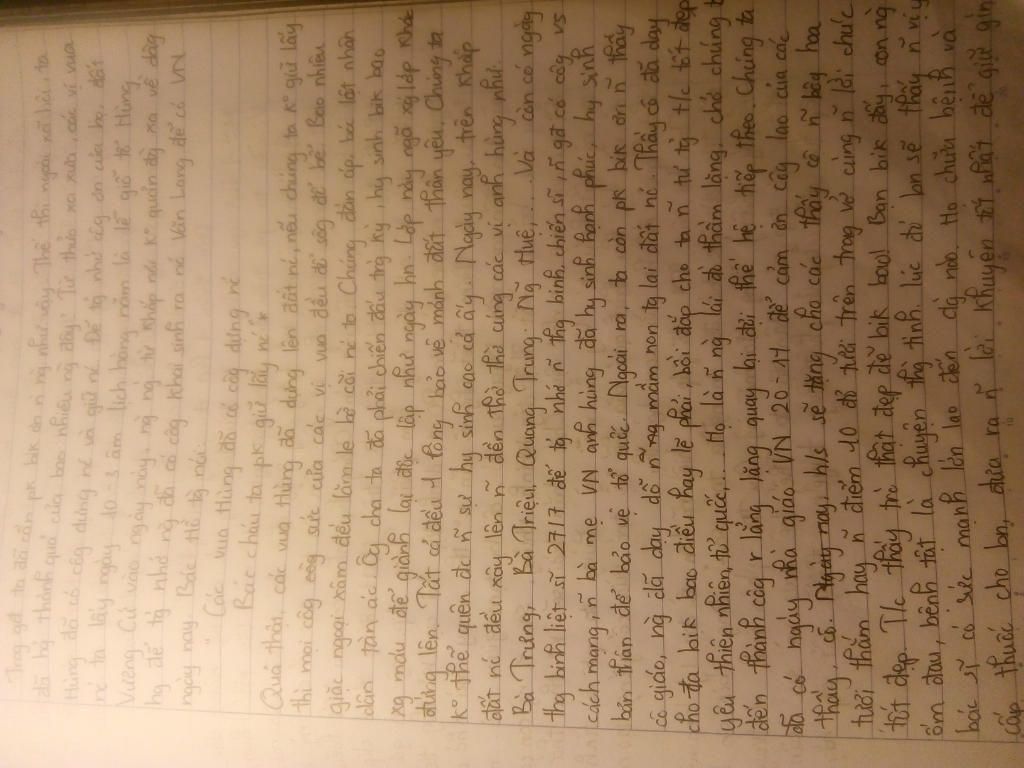 Trog gđ ta đã cần pk bik ơn n ng như vậy. Thế thì ngoài xã hội, ta
đã bg thành quả của bao nhiêu ng đây? Từ thuở xa xưa, các vị vua
Hùng đã có côg dựng nc và giữ nc. Để tg nhớ côg ơn của họ, đất
nc ta lấy ngày 10-3 âm lịch hàng năm là lễ giỗ tổ Hùng
Vương. Cứ vào ngày này, ng ng từ khắp nơi k° quản đg xa về dâg
hg để tg nhớ ng đã có côg khai sinh ra nc Văn Lang để có VN
ngày nay. Bác Hồ từg nói:
" Các vua Hùng đã có côg dựng nc
Bác cháu ta pk giữ lấy nc "
Quả thật, các vua Hùng đã dựng lên đất nc, nếu chúng ta k° giữ lấy
thì mọi côg sức của các vị vua đều đổ sôg đổ bể. Bao nhiêu
giặc ngoại xâm đều lăm le bờ cõi nc ta. Chúng đàn áp, bóc lột nhân
dân tàn ác. Ôg cha ta đã phải chiến đấu trog kỳ, hy sinh bik bao
xg máu để giành lại độc lập như ngày hn. Lớp này ngã xg, lớp khác
đứng lên. Tất cả đều 1 lòng bảo vệ mảnh đất thân yêu. Chúng ta
k° thể quên đc n sự hy sinh cao cả ấy. Ngày nay, trên khắp
đất nc đều xây lên n đền thờ thờ cúng các vị anh hùng như:
Bà Trưng, Bà Triệu, Quang Trung, Ng Huệ,... Và còn có ngày
thg binh liệt sĩ 27/7 để tg nhớ n thg binh, chiến sĩ, n gđ có côg vs
cách mạng, n bà mẹ VN anh hùng đã hy sinh hạnh phúc, hy sinh
bản thân để bảo vệ tổ quốc. Ngoài ra, ta còn pk bik ơn n thầy
cô giáo, ng đã dạy dỗ n mầm non tg lai đất nc. Thầy cô đã dạy
cho ta bik bao điều hay lẽ phải, bồi đắp cho ta n tư tg t/c tốt đẹp
yêu thiên nhiên, tổ quốc,... Họ là n ng lái đò thầm lặng, chở chúng t
đến thành côg r lẳng lặng quay lại đợi thế hệ tiếp theo. Chúng ta
đã có ngày nhà giáo VN 20-11 để cảm ơn côg lao của các
thầy, cô. Ngày nay h/s sẽ tặng cho các thầy cô n bôg hoa
tươi thắm hay n điểm 10 đỏ tươi trên trag vở cùng n lời chúc
tốt đẹp. T/c thầy trò thật đẹp đẽ bik bao! Bạn bik đấy, con ng
ốm đau, bệnh tật là chuyện thg tình. Lúc đó bạn sẽ thấy n vị
bác sĩ có sức mạnh lớn lao đến dg nào. Họ chữa bệnh và
cấp thuốc cho bạn, đưa ra n lời khuyên tốt nhất để giữ gìn